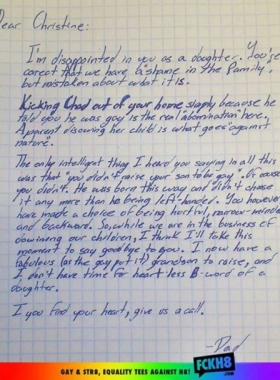 Dear Christine:
I'm disappointed in you as a daughter. You're
correct that we have a "shame in the family",
but mistaken about what it is.
Kicking Chad out of your home simply because he
told you he was gay is the real "abomination" here.
A parent disowning her child is what goes "against
nature".
The only intelligent thing I heard you saying in all this
was that "you didn't raise your son to be gay". Of course
you didn't. He was born this way and didn't choose
it any more than he being left-handed. You however
have made a choice of being hurtful, narrow-minded
and backward. So, while we are in the business of
disowning our children, I think I'll take this
moment to say goodbye to you. I now have a
fabulous (as the gay put it) grandson to raise, and
I don't have time for heart less B-word of a
daughter.
If you find your heart, give us a call.
- Dad
GAY & STR8, EQUALITY TEES AGAINST H8!
FCKH8
.COM